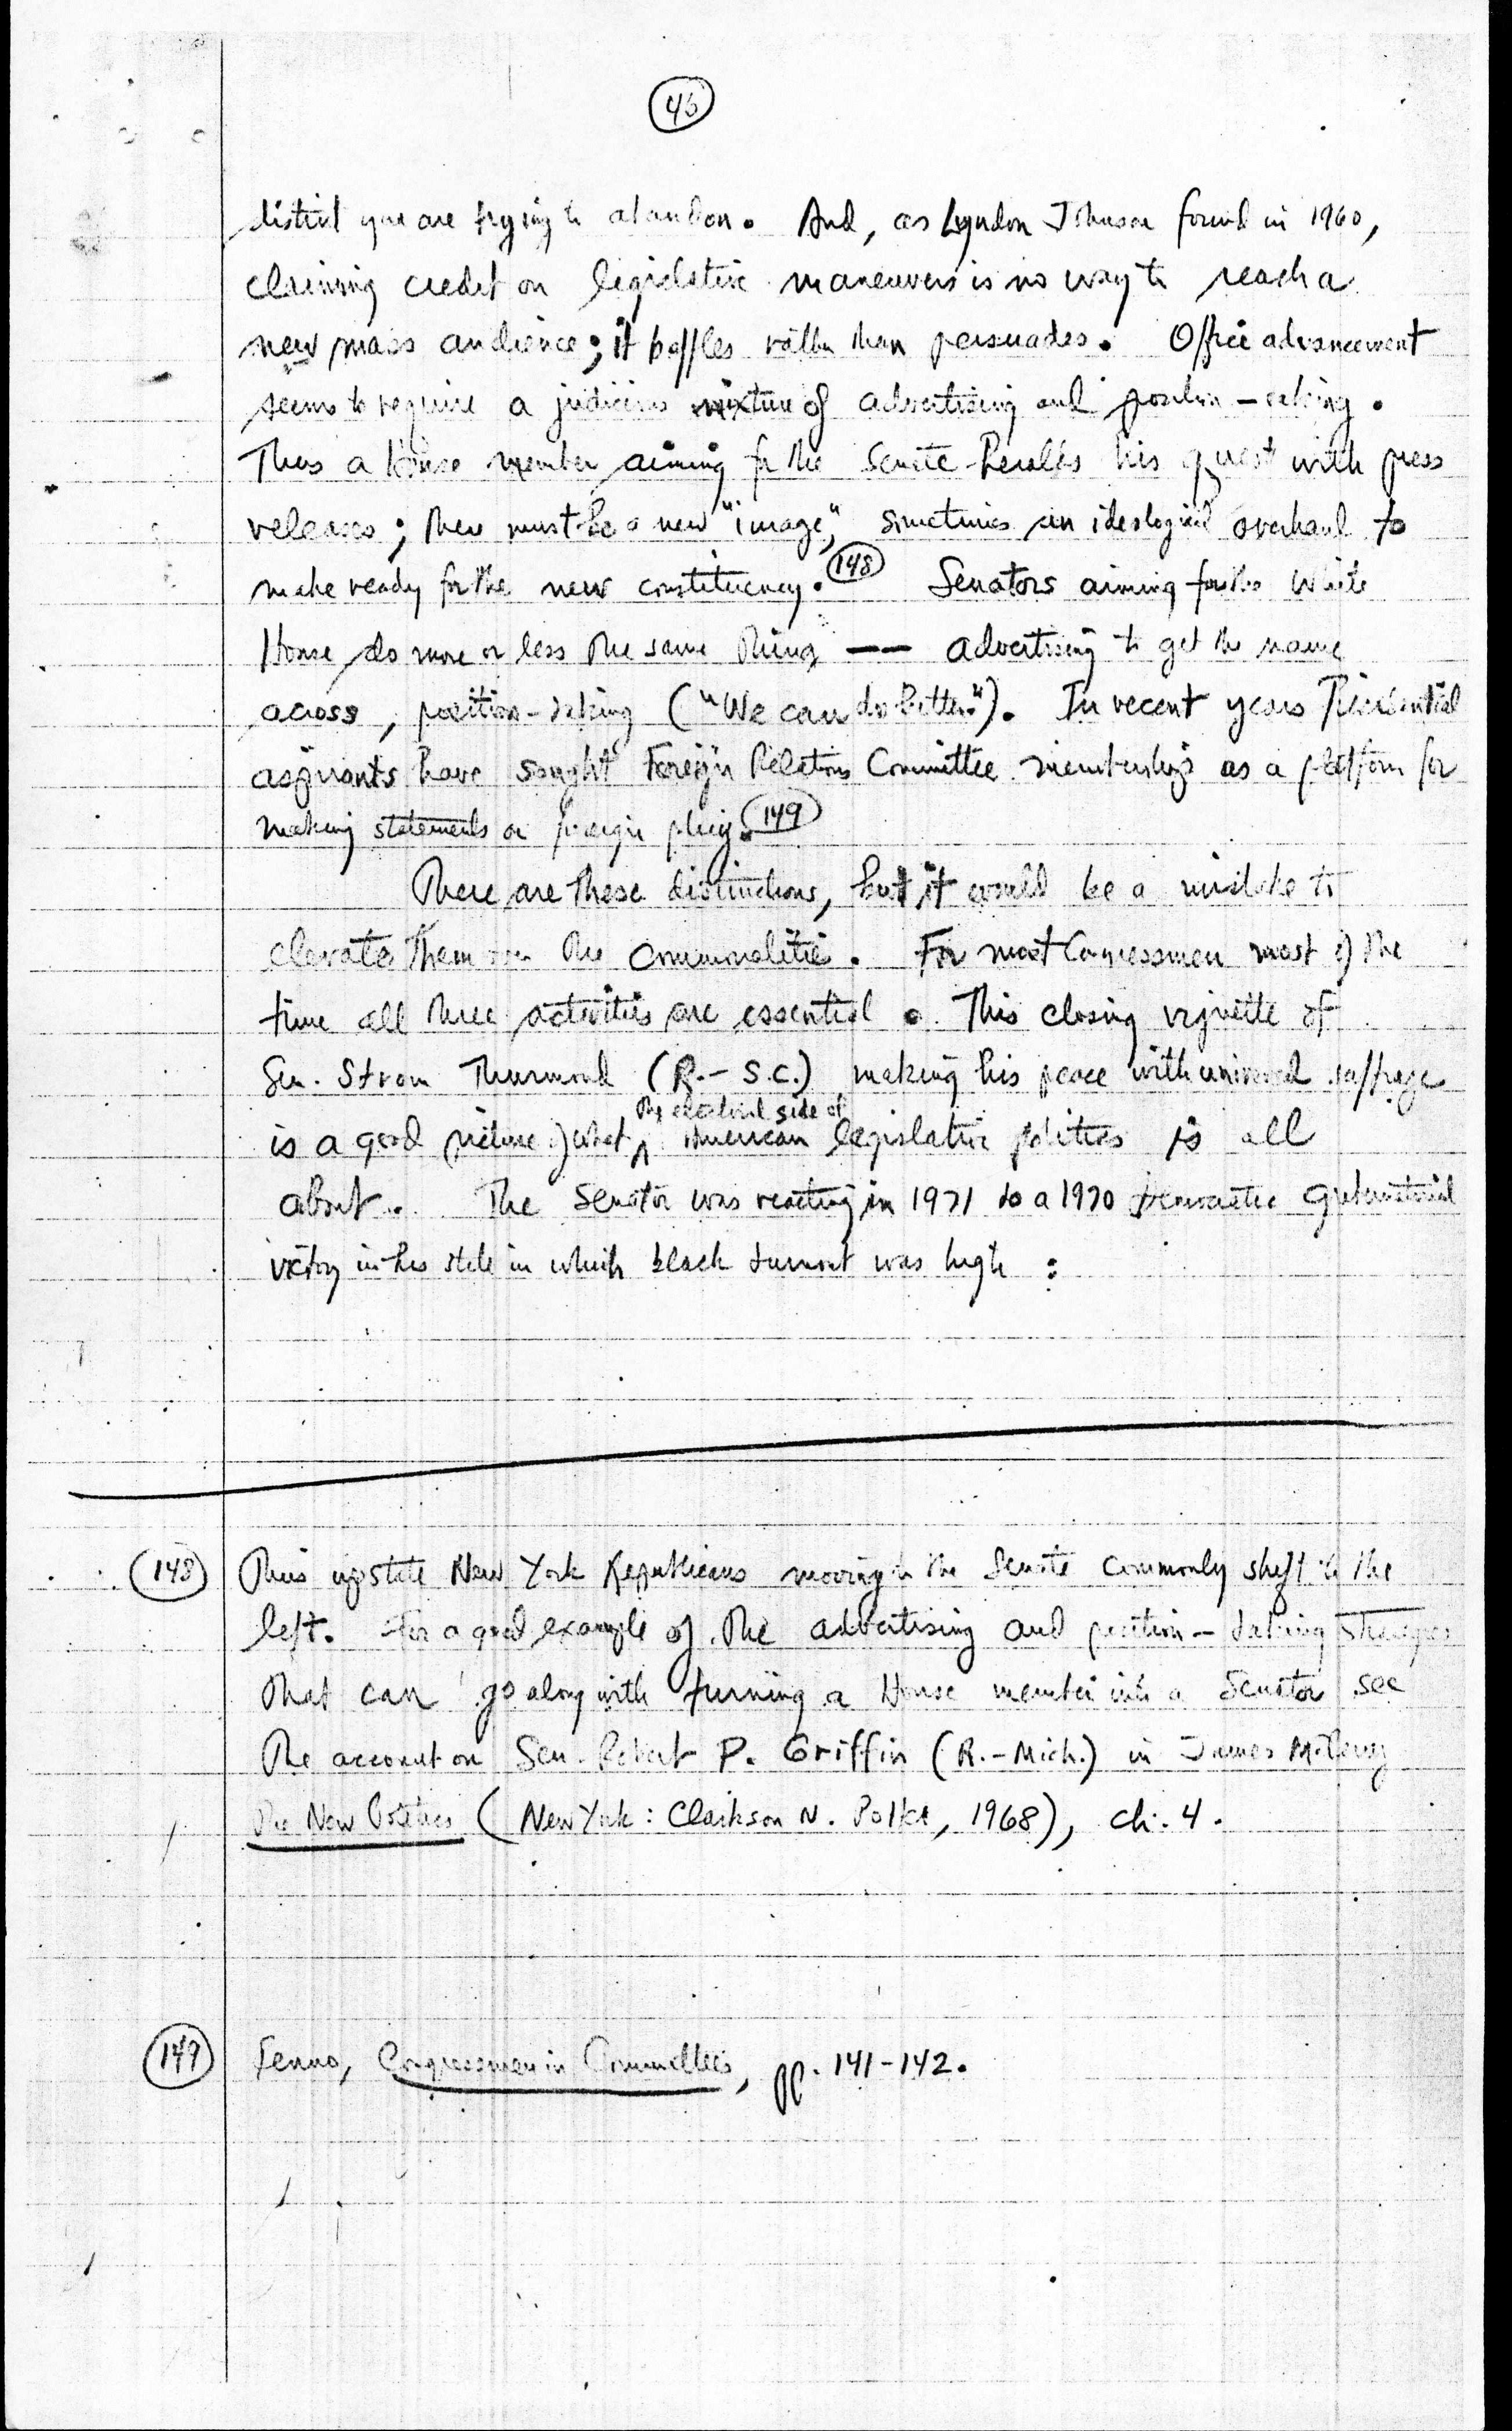 46
district you are trying to abandon. And, as Lyndon Johnson found in 1960,
claiming credit on legislative maneuvers is no way to reach a
new mass audience; it baffles rather than persuades. Office advancement
seems to require a judicious mixture of advertising and position-taking.
Thus a House member aiming for the Senate heralds his quest with press
releases; there must be a new "image," sometimes an ideological overhaul to
make ready for the new constituency. 148 Senators aiming for the White
House do more or less the same thing — advertising to get the name
across, position-taking ("We can do better."). In recent years Presidential
aspirants have sought Foreign Relations Committee membership as a platform for
making statements on foreign policy. 149
There are these distinctions, but it would be a mistake to
elevate them over the commonalities. For most Congressmen most of the
time all three activities are essential. This closing vignette of
Sen. Strom Thurmond (R.-S.C.) making his peace with universal suffrage
the electoral side of
is a good picture of what American legislative politics is all
about. The Senator was reacting in 1971 to a 1970 Democratic gubernatorial
victory in his state in which black turnout was high:
148 Thus upstate New York Republicans moving to the Senate commonly shift to the
left. For a good example of the advertising and position-taking strategies
that can go along with turning a House member into a Senator see
the account on Sen. Robert P. Griffin (R.-Mich.) in James M. Perry
The New Politics (New York: Clarkson N. Potter, 1968), ch. 4.
149 Fenno, Congressmen in Committees, pp. 141-142.